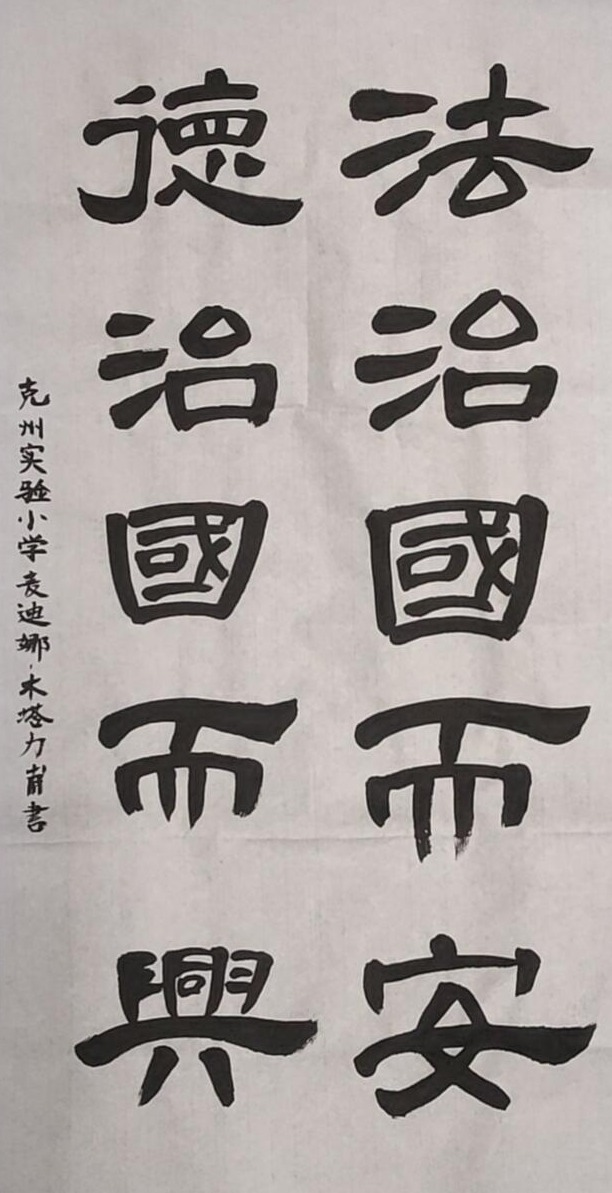 法治國而安
德治國而興
克州实验小学麦迪娜·木塔力甫書